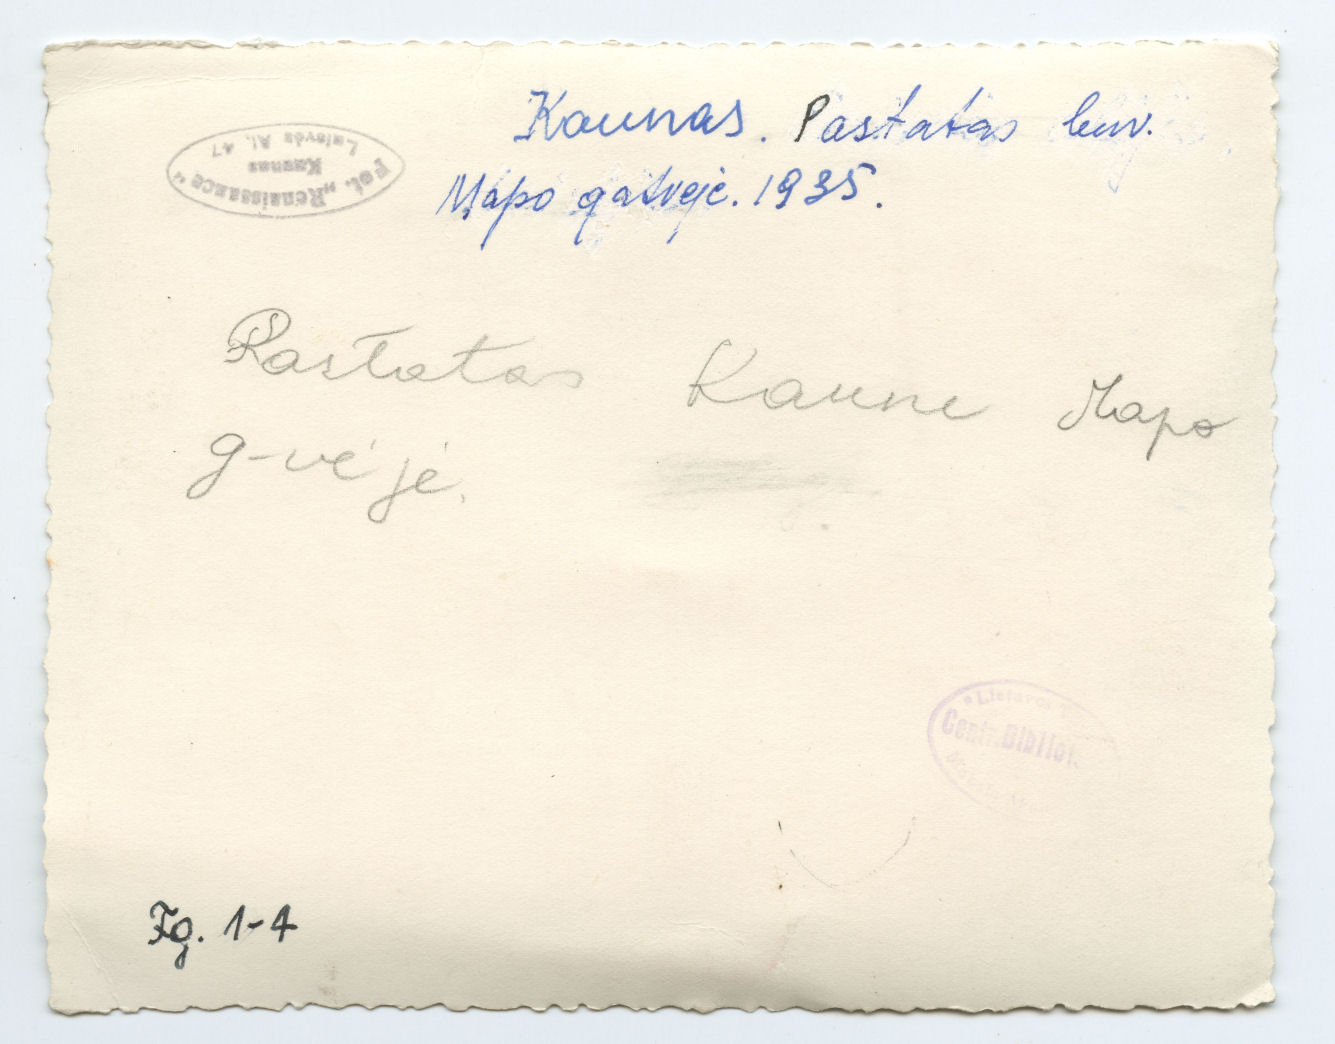 Kaunas. Pastatas buv.
Mapo gatvėje. 1935.
Fot. „Renaissance"
Kaunas
Laisvės Al. 47
Pastatas Kaune Mapo
g-vėjė.
Lietuvos
Centr. Bibliot.
Fg. 1-4